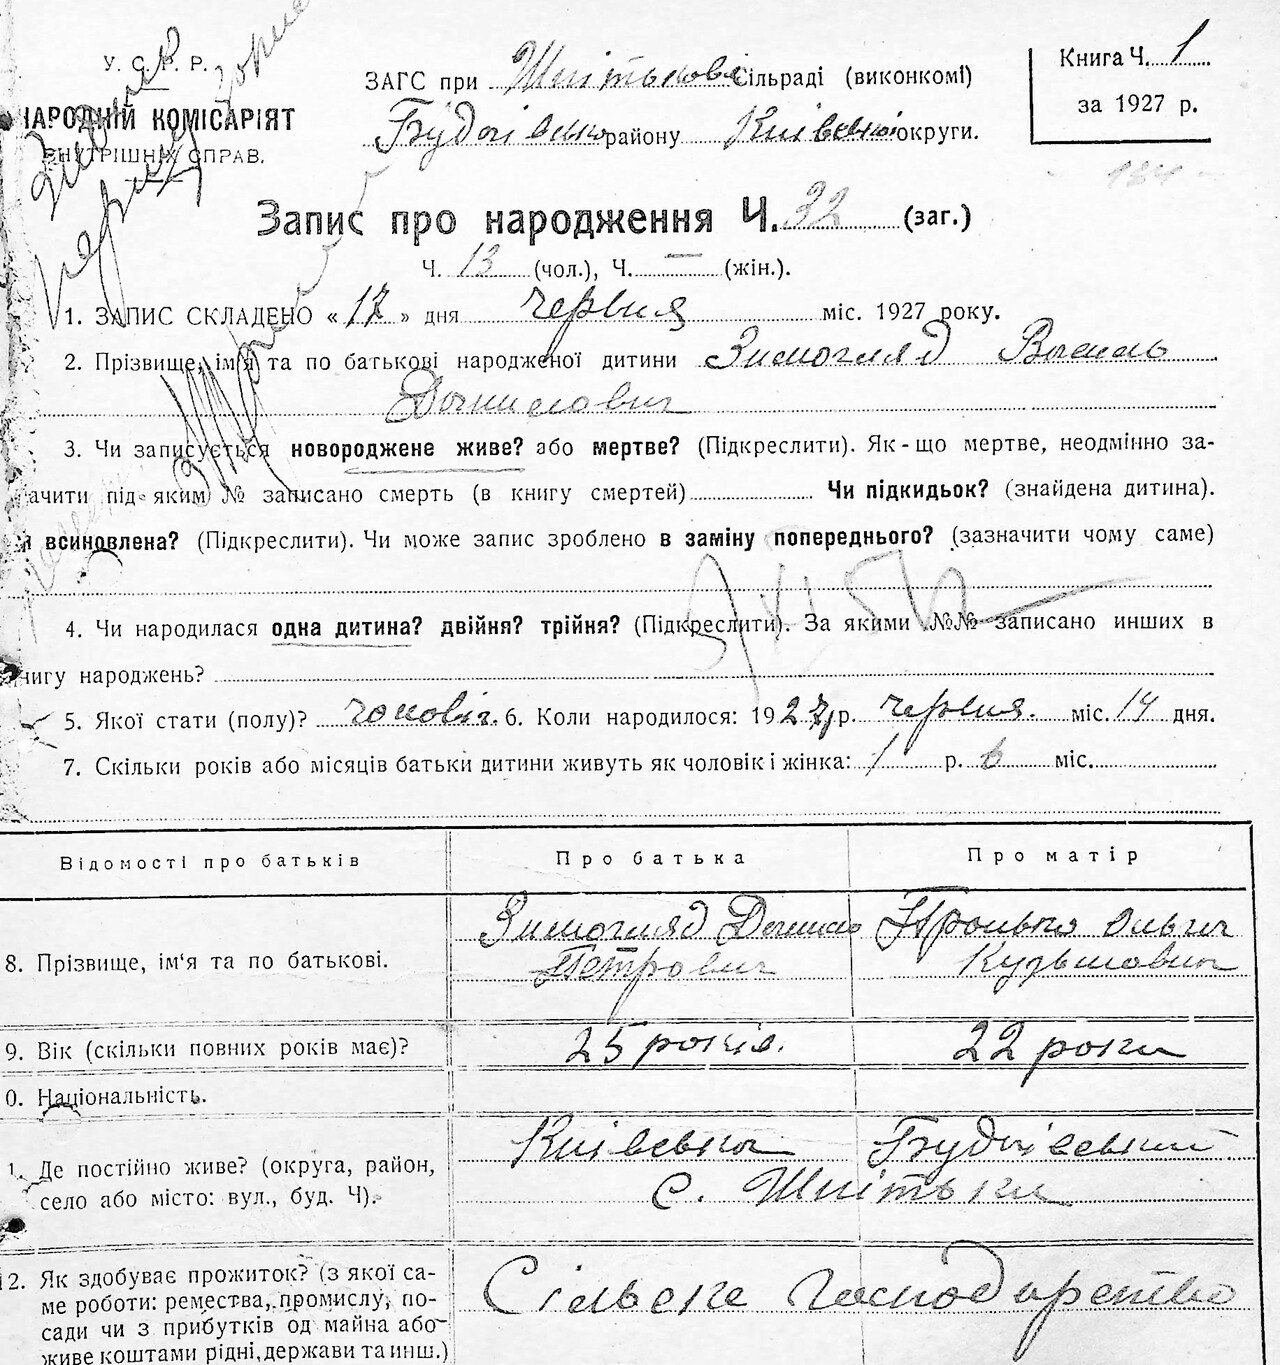 У. С. Р. Р.
НАРОДНІЙ КОМІСАРІЯТ
ВНУТРІШНІХ СПРАВ.
ЗАГС при Шпітьков Сільраді (виконкомі)
Будаївсько району Київської округи.
Книга Ч. 1
за 1927 р.
134
Запис про народження Ч. 32 (заг.)
Ч. 13 (чол.), Ч. — (жін.).
1. ЗАПИС СКЛАДЕНО « 17 » дня червня міс. 1927 року.
2. Прізвище, ім'я та по батькові народженої дитини Зимогляд Василь
Данилович
3. Чи записується новороджене живе? або мертве? (Підкреслити). Як-що мертве, неодмінно за-
ачити під яким № записано смерть (в книгу смертей) Чи підкидьок? (знайдена дитина).
и всиновлена? (Підкреслити). Чи може запис зроблено в заміну попереднього? (зазначити чому саме)
4. Чи народилася одна дитина? двійня? трійня? (Підкреслити). За якими №№ записано инших в
нигу народжень?
5. Якої стати (полу)? чоловіч. 6. Коли народилося: 1927 р. червня міс. 14 дня.
7. Скільки років або місяців батьки дитини живуть як чоловік і жінка: 1 р. 6 міс.
Відомості про батьків Про батька Про матір
Зимогляд Данило Тронько Ольга
8. Прізвище, ім'я та по батькові. Петрович Кузьмовна
9. Вік (скільки повних років має)? 25 років. 22 роки
0. Національність.
Київська Будаївський
1. Де постійно живе? (округа, район,
село або місто: вул., буд. Ч). с. Шпітьки
12. Як здобуває прожиток? (з якої са-
ме роботи: ремества, промислу, по- Сільске господарство
сади чи з прибутків од майна або
живе коштами рідні, держави та инш.)